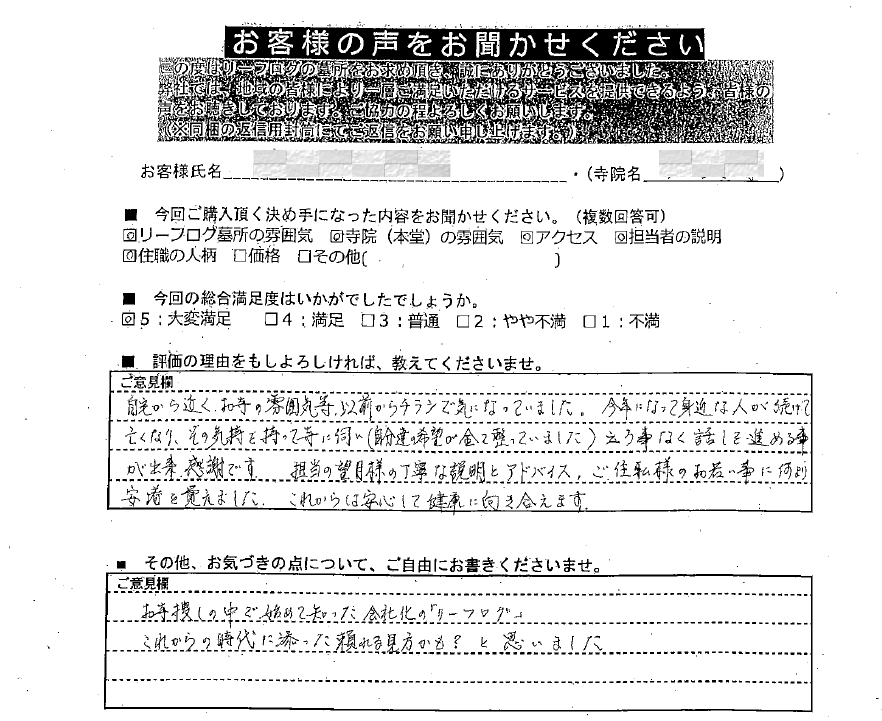 お客様の声をお聞かせください
の度はリーフログの墓所をお求め頂き、誠にありがとうございました。
弊社では、地域の皆様により一層ご満足いただけるサービスを提供できるよう、皆様の
声をお聞きしております。ご協力の程よろしくお願いします。
(※同梱の返信用封筒にてご返信をお願い申し上げます。)
お客様氏名 ・(寺院名 )
■ 今回ご購入頂く決め手になった内容をお聞かせください。(複数回答可)
☑リーフログ墓所の雰囲気 ☑寺院(本堂)の雰囲気 ☑アクセス ☑担当者の説明
☑住職の人柄 □価格 □その他( )
■ 今回の総合満足度はいかがでしたでしょうか。
☑5:大変満足 □4:満足 □3:普通 □2:やや不満 □1:不満
■ 評価の理由をもしよろしければ、教えてくださいませ。
ご意見欄
自宅から近く、お寺の雰囲気等、以前からチラシで気になっていました。今年になって身近な人が続けて
亡くなり、その気持を持って寺に伺い(自分達の希望が全て整っていました)迷う事なく話しを進める事
が出来感謝です 担当の望月様の丁寧な説明とアドバイス、ご住職様のお若い事に何より
安堵を覚えました。これからは安心して健康に向き合えます。
■ その他、お気づきの点について、ご自由にお書きくださいませ。
ご意見欄
お寺捜しの中で始めて知った会社化の「リーフログ」
これからの時代に添った頼れる見方かも?と思いました